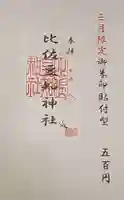 三月限定御朱印貼付型
五百円
奉拝
比佐豆知神社